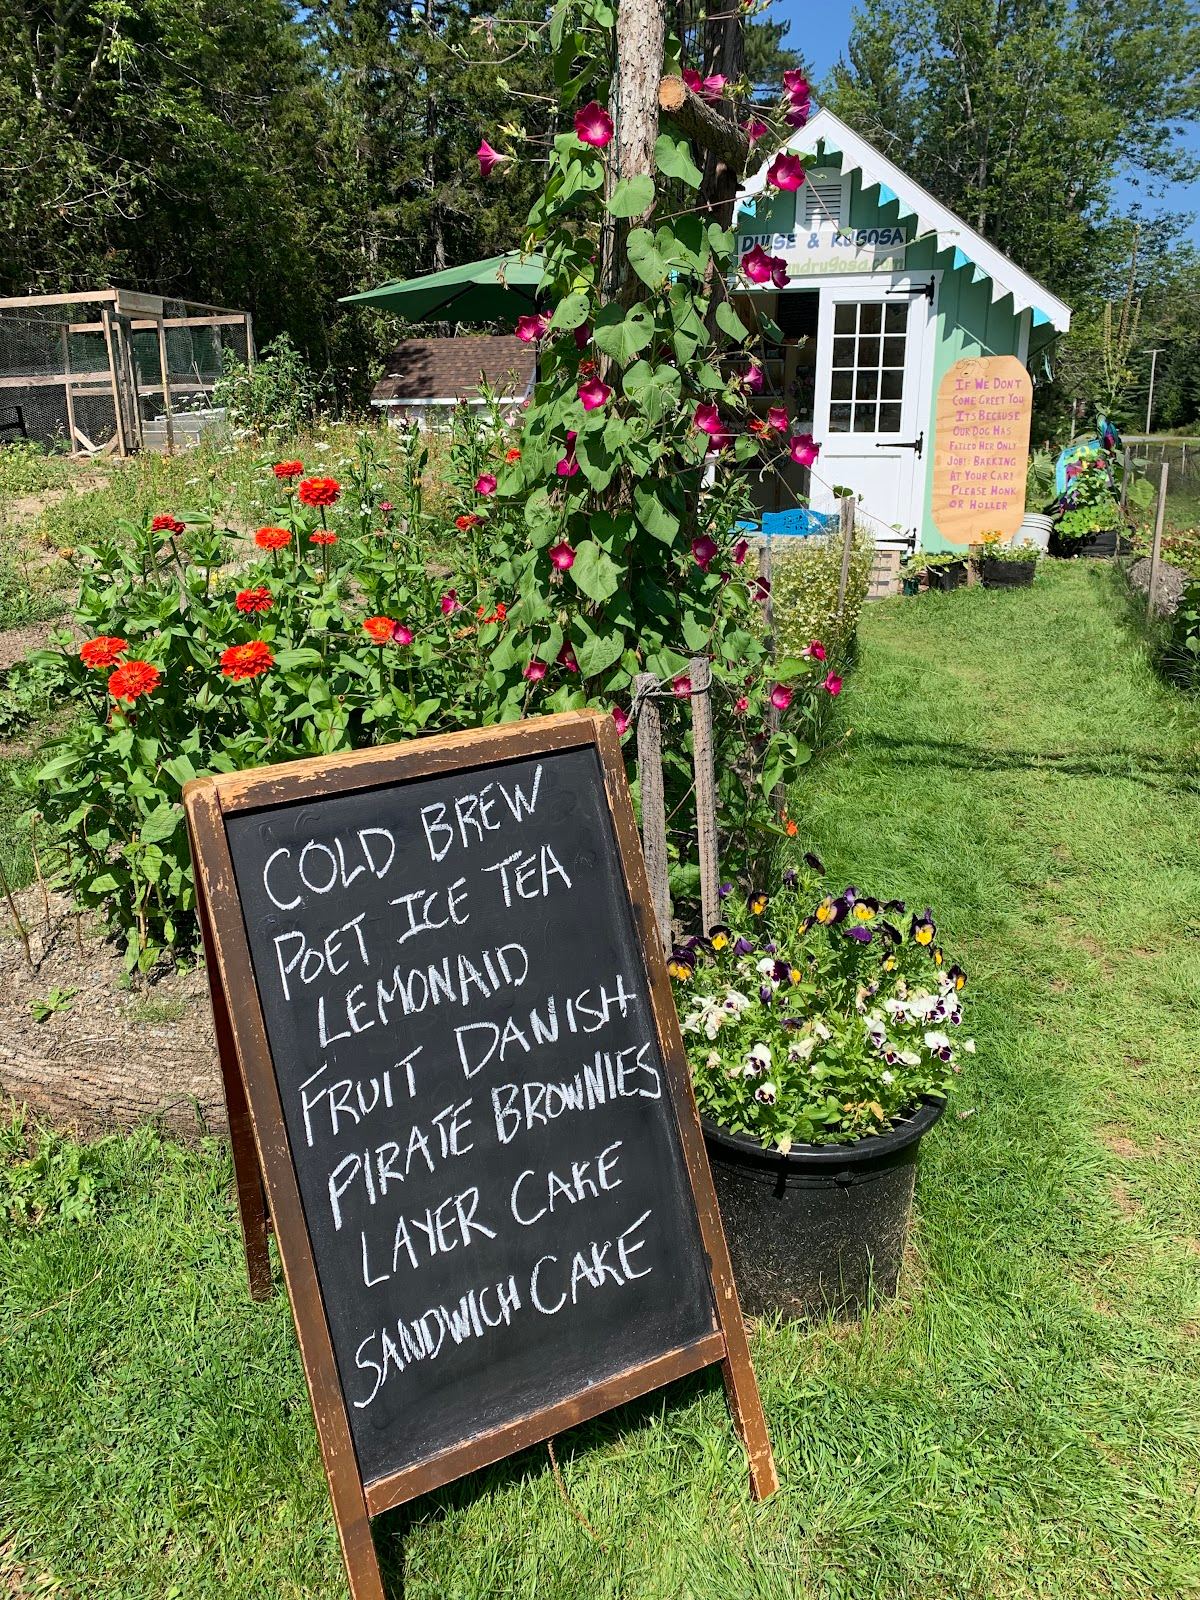 & RUGOSA
COLD BREW
POET ICE TEA
LEMONAID
FRUIT DANISH
PIRATE BROWNIES
LAYER CAKE
SANDWICH CAKE
IF WE DON'T
COME GREET YOU
ITS BECAUSE
OUR DOG HAS
FAILED HER ONLY
JOB: BARKING
AT YOUR CAR!
PLEASE HONK
OR HOLLER